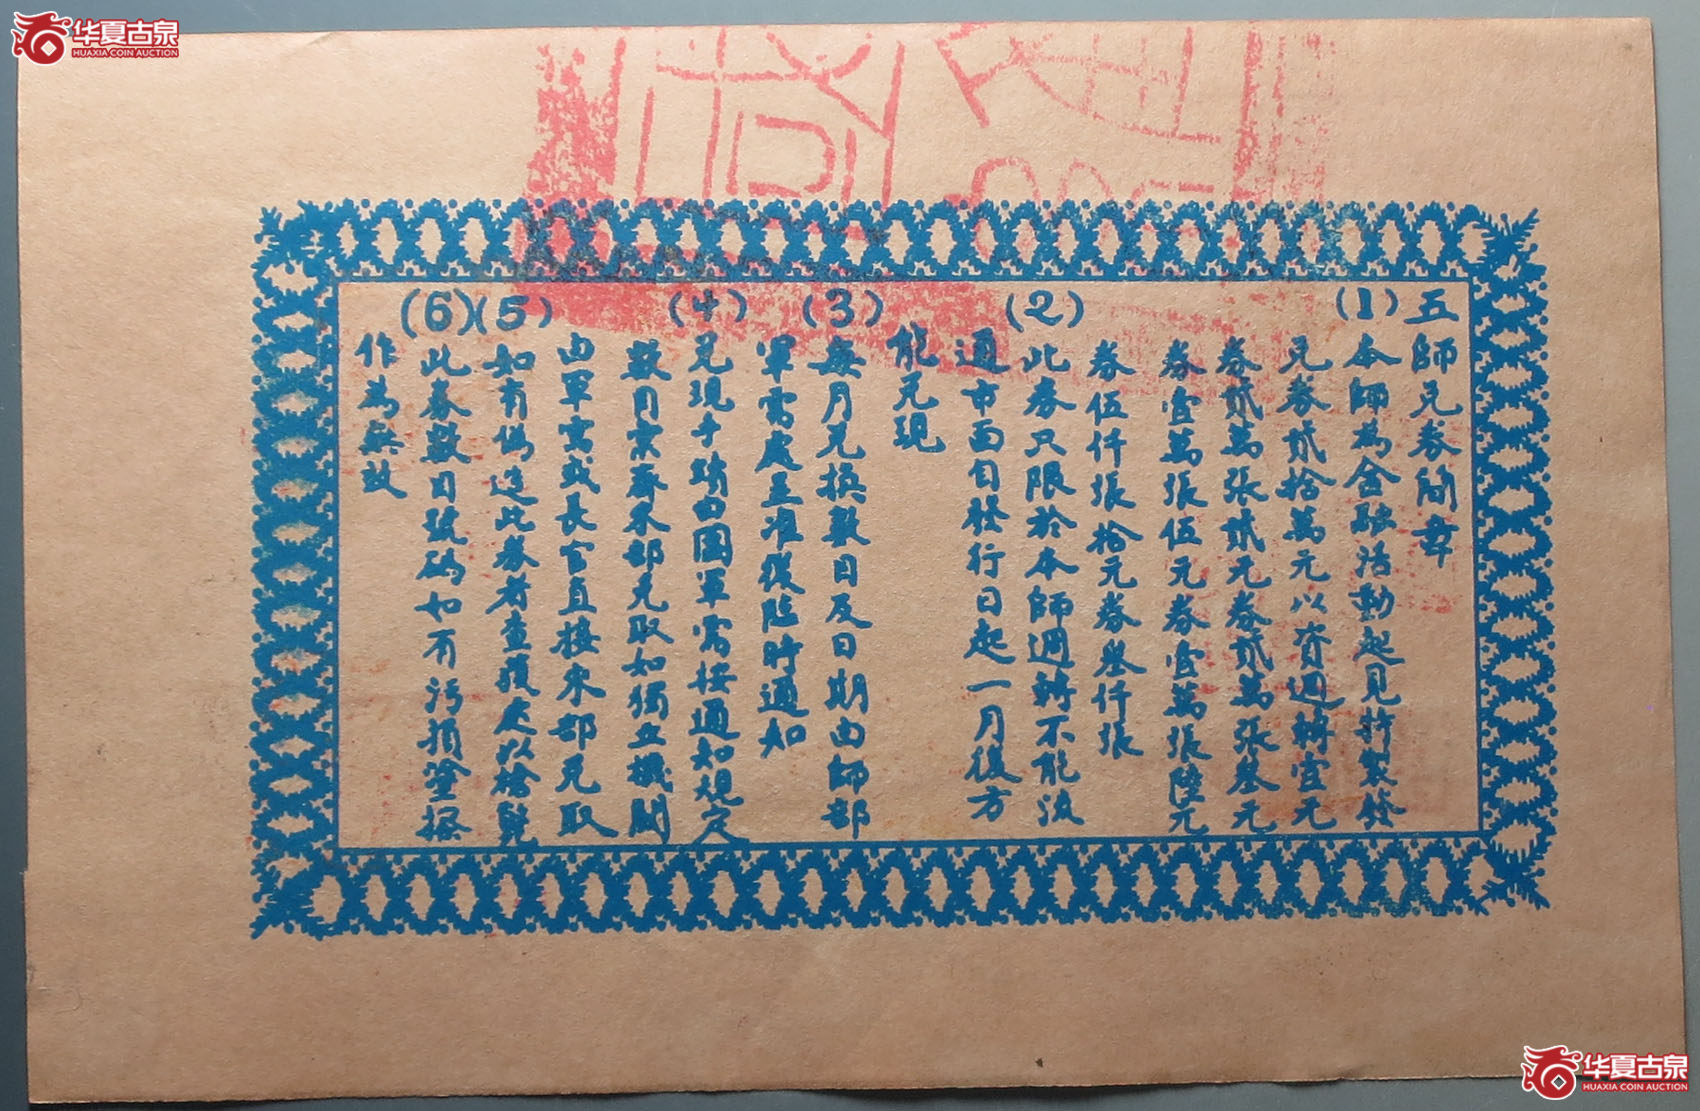 华夏古泉
HUAXIA COIN AUCTION
五師兑券简章
(1)
本師為金融活動起見特製發
兑券貳拾萬元以資週轉壹元
券貳萬張貳元券貳萬張叁元
券壹萬張伍元券壹萬張陸元
券伍仟張拾元券叁仟張
(2)
此券只限於本師週轉不能流
通市面自發行日起一月後方
能兑現
(3)
每月兑換數目及日期由師部
軍需處呈准後臨時通知
(4)
兑現手續由團軍需按通知規定
數目彙齊來部兑取如獨立機関
由軍需或長官直接來部兑取
(5)
如有偽造此券者查獲處以槍斃
(6)
此券数目號碼如有污損塗擦
作為無效
华夏古泉
HUAXIA COIN AUCTION